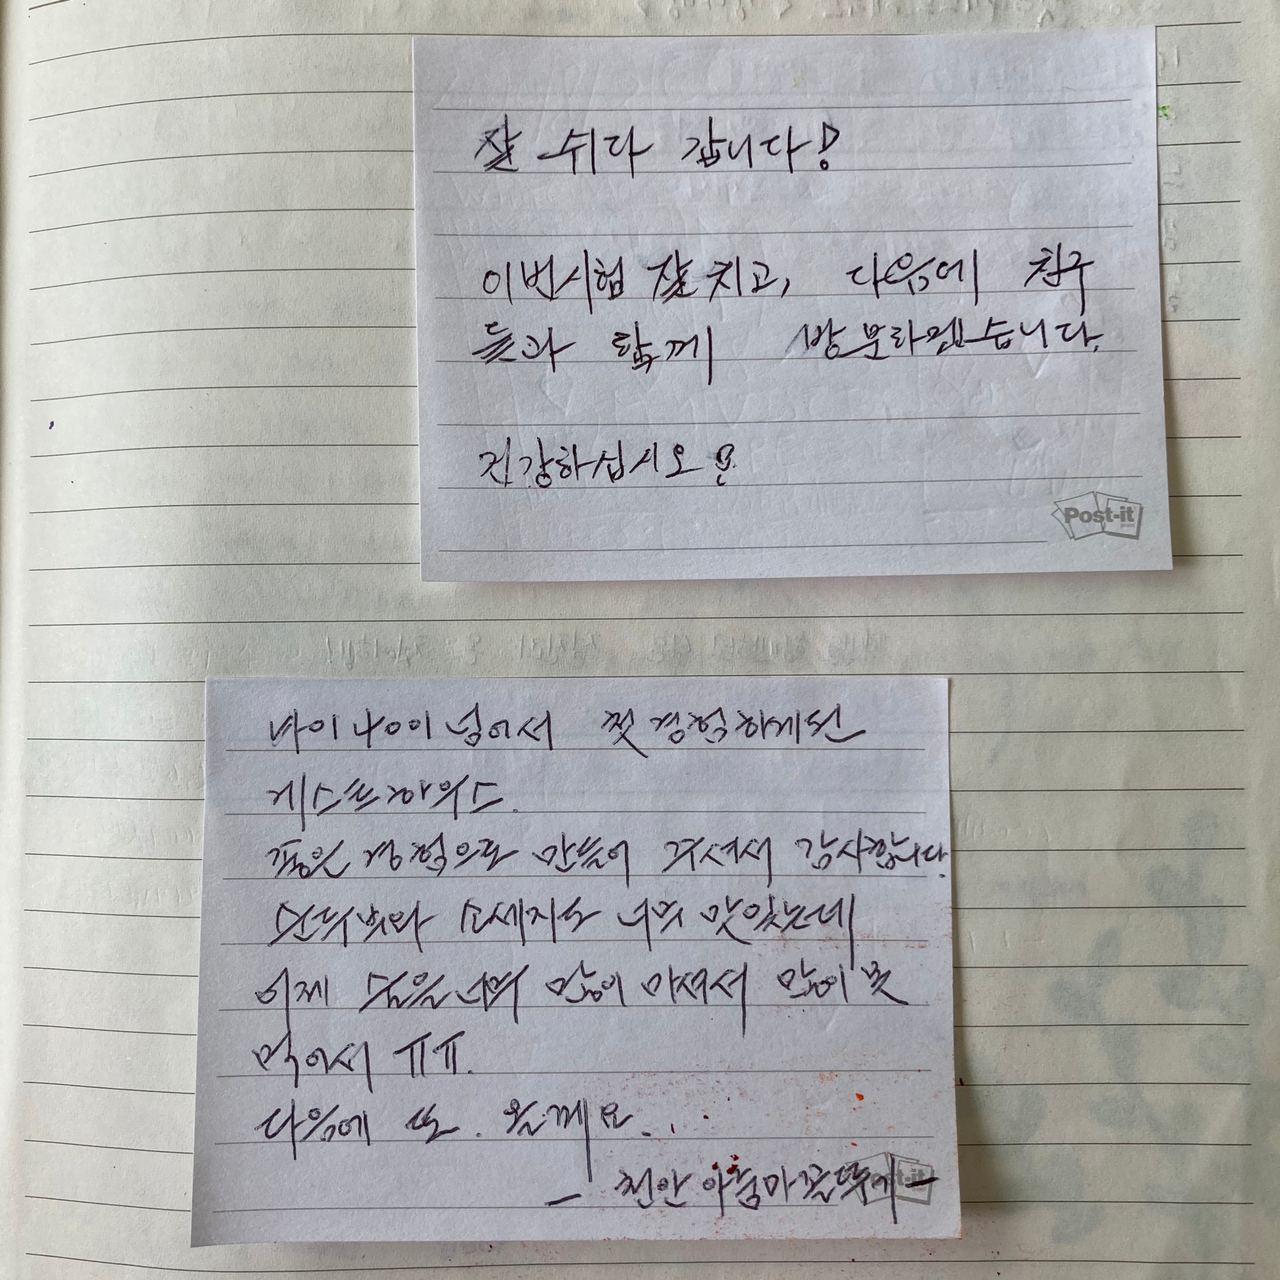 잘 쉬다 갑니다!
이번시험 잘 치고, 다음에 친구
들과 함께 방문하겠습니다.
건강하십시오!
Post-it
나이 넘어서 첫 경험하게된
게스트하우스.
좋은 경험으로 만들어 주셔서 감사합니다.
소세지도 너무 맛있는데
어제 술을 너무 많이 마셔서 많이 못
먹어서 ㅠㅠ.
다음에 또. 올께요.
- 천안 아줌마
Post-it